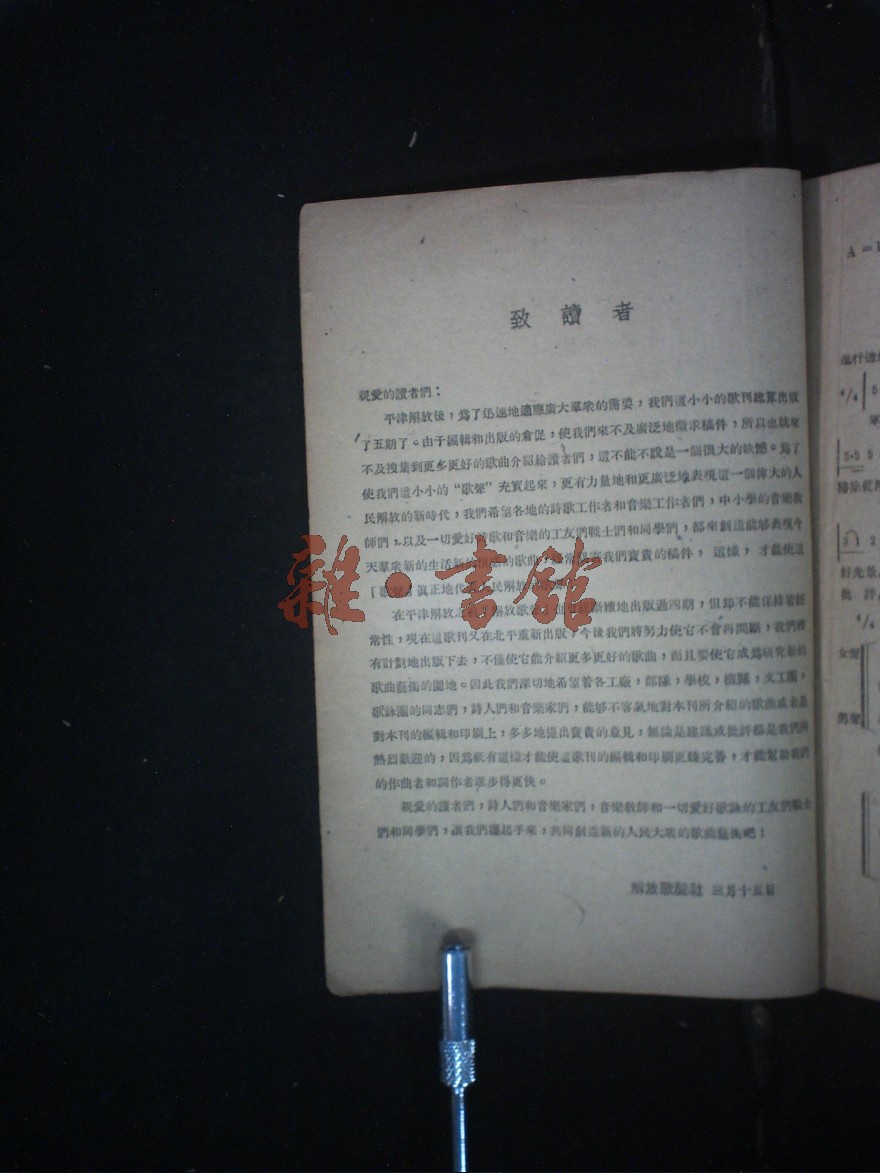 致讀者
親愛的讀者們：
平津解放後，爲了迅速地適應廣大羣衆的需要，我們這小小的歌刊總算出版
了五期了。由于編輯和出版的倉促，使我們來不及廣泛地徵求稿件，所以也就來
不及搜集到更多更好的歌曲介紹給讀者們，這不能不說是一個很大的缺憾。爲了
使我們這小小的“歌聲”充實起來，更有力量地和更廣泛地表現這一個偉大的人
民解放的新時代，我們希望各地的詩歌工作者和音樂工作者們，中小學的音樂教
師們，以及一切愛好詩歌和音樂的工友們戰士們和同學們，都來創造能够表現今
天羣衆新的生活新的情感的歌曲，經常供給我們寶貴的稿件，這樣，才能使這
「歌聲」眞正地代表人民解放
在平津解放之前「解放歌聲」斷續地出版過四期，但却不能保持着經
常性，現在這歌刊又在北平重新出版，今後我們將努力使它不會再間斷，我們將
有計劃地出版下去，不僅使它能介紹更多更好的歌曲，而且要使它成爲研究新的
歌曲藝術的園地。因此我們深切地希望着各工廠，部隊，學校，機關，文工團，
歌詠團的同志們，詩人們和音樂家們，能够不客氣地對本刊所介紹的歌曲或者是
對本刊的編輯和印刷上，多多地提出寶貴的意見，無論是建議或批評都是我們所
熱烈歡迎的，因爲祇有這樣才能使這歌刊的編輯和印刷更臻完善，才能幫助我們
的作曲者和詞作者進步得更快。
親愛的讀者們，詩人們和音樂家們，音樂教師和一切愛好歌詠的工友們戰士
們和同學們，讓我們攜起手來，共同創造新的人民大衆的歌曲藝術吧！
解放歌聲社 三月十五日
雜·書館
A＝
進行速
4/4 5
軍
5·5 5
掃除乾
3 2
好先景
批 評
4/4
女聲
男聲